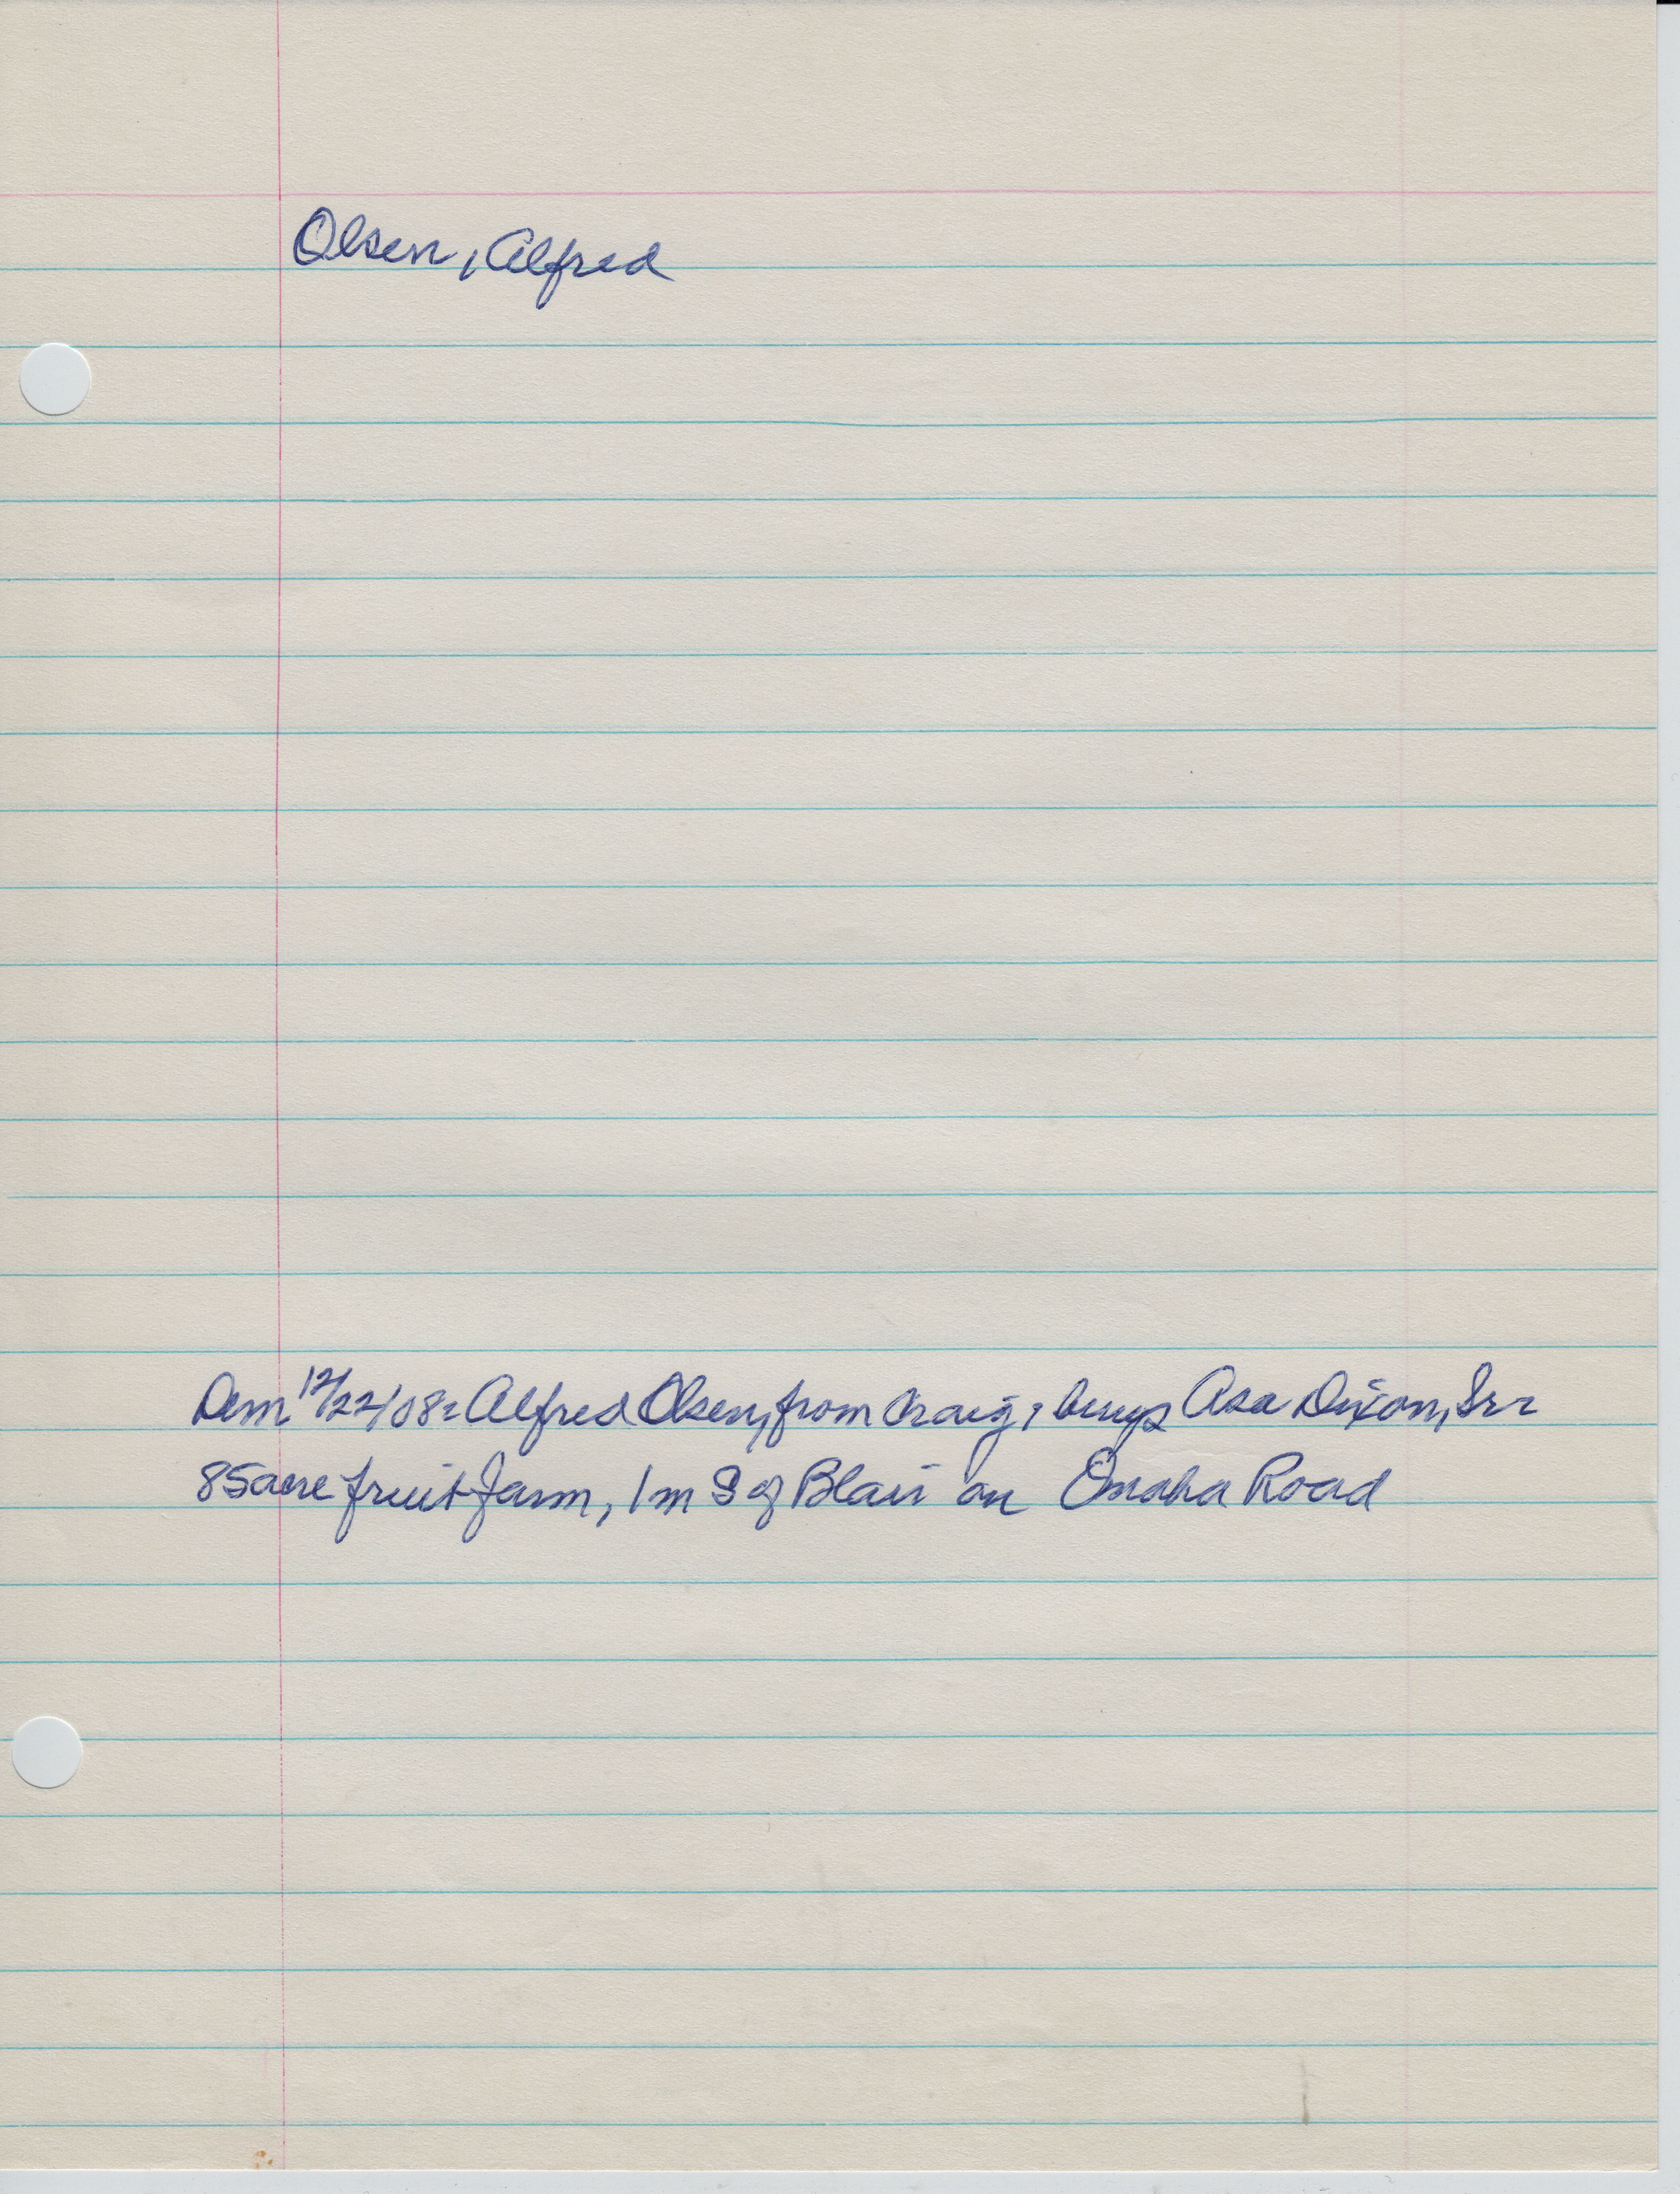 Olsen, Alfred
Dem 12/22/08: Alfred Olsen, from Craig, buys Asa Dixon, Sr.
85 acre fruit farm, 1 m S of Blair on Omaha Road